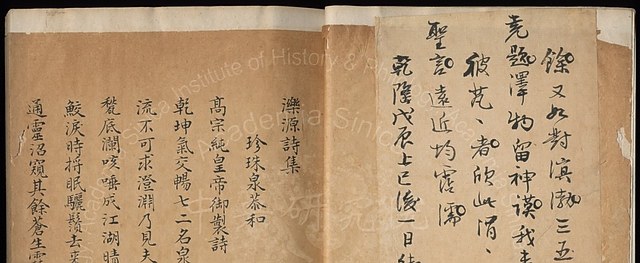 餘又如對溟渤三五
堯題澤物留神謨我
彼芃、者欣此
聖言遠近均霑濡
乾隆戊辰上巳後一日
濼源詩集
珍珠泉恭和
高宗純皇帝御製詩
乾坤氣交暢七二名泉
流不可求澄淵乃見夫
甃底瀾咳唾成江湖晴
鮫淚時捋眠驪鬚去來
通靈沼窺其餘蒼生
Institute of History &
Academia Sinica